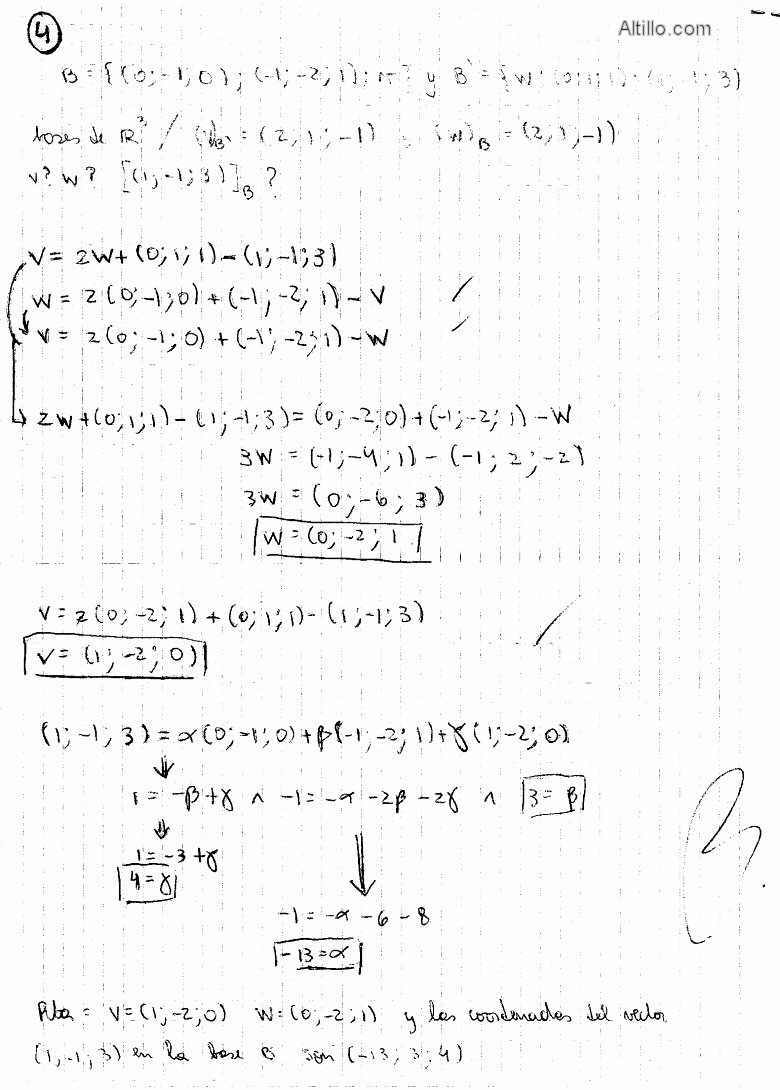 Altillo.com
4
B = {(0;-1;0); (-1;-2;1); v} y B' = {w; (0;1;1); (1;-1;3)
bases de R³ / (v)B' = (2;1;-1) (w)B = (2;1;-1)
v? w? [(1;-1;3)]B ?
v = 2w + (0;1;1) - (1;-1;3)
w = 2(0;-1;0) + (-1;-2;1) - v
v = 2(0;-1;0) + (-1;-2;1) - w
2w + (0;1;1) - (1;-1;3) = (0;-2;0) + (-1;-2;1) - w
3w = (-1;-4;1) - (-1;2;-2)
3w = (0;-6;3)
w = (0;-2;1
v = 2(0;-2;1) + (0;1;1) - (1;-1;3)
v = (1;-2;0)
(1;-1;3) = α(0;-1;0) + β(-1;-2;1) + γ(1;-2;0)
⇓
1 = -β + γ ∧ -1 = -α - 2β - 2γ ∧ 3 = β
⇓
1 = -3 + γ
4 = γ
-1 = -α - 6 - 8
-13 = α
Rta = v = (1;-2;0) w = (0;-2;1) y las coordenadas del vector
(1;-1;3) en la base B son (-13;3;4)